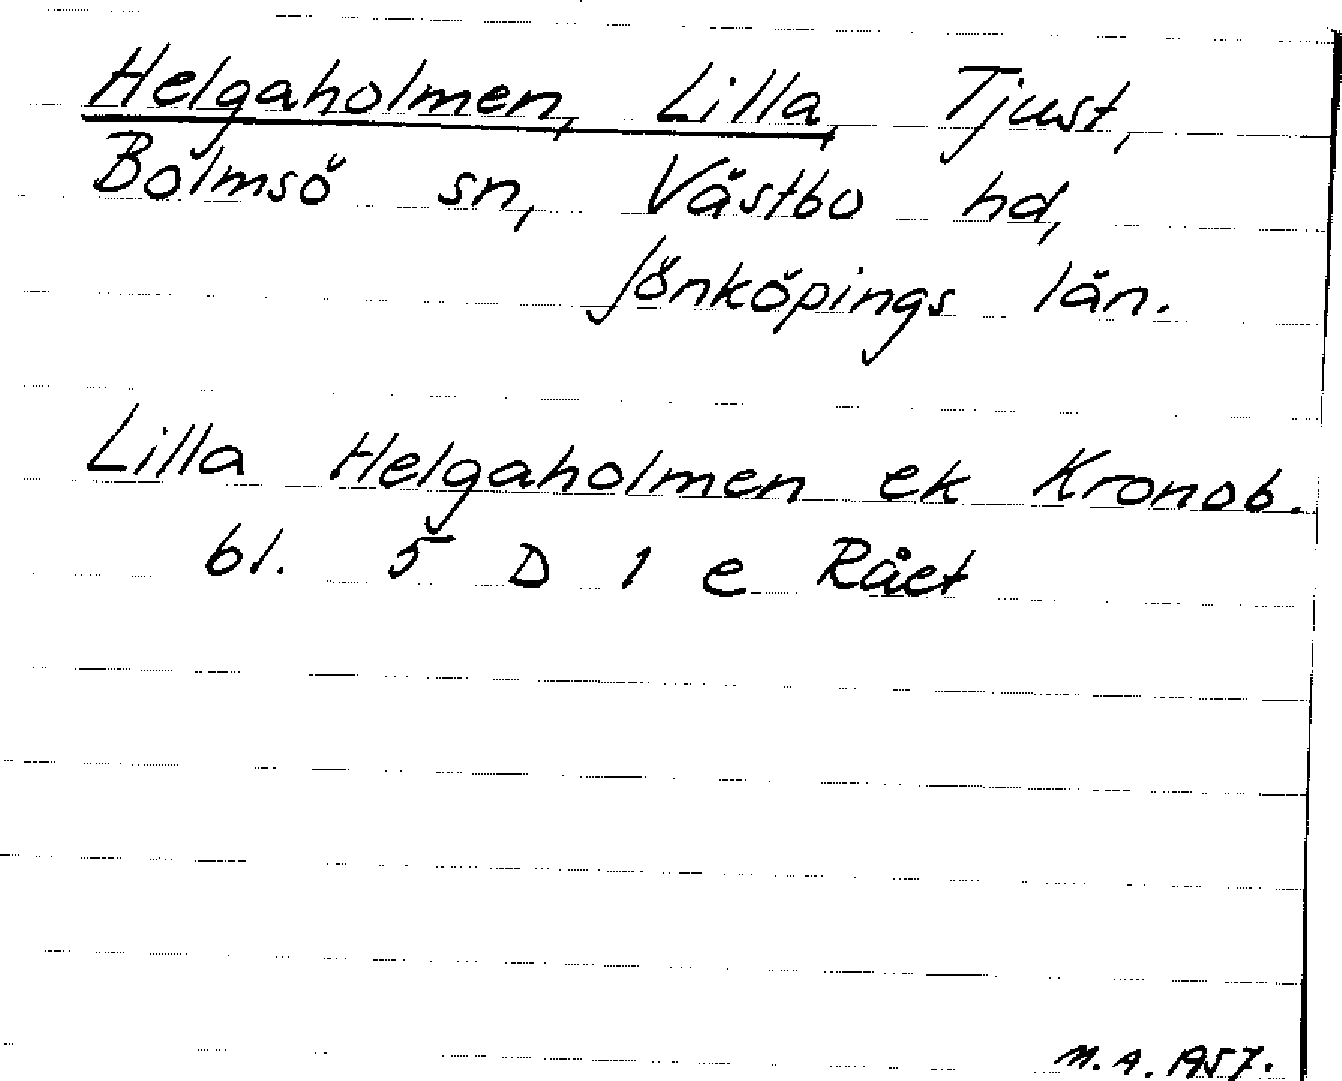 Helgaholmen, Lilla, Tjust,
Bolmsö sn, Västbo hd,
Jönköpings län.
Lilla Helgaholmen ek Kronob.
bl. 5 D 1 e Rået
M.A. 1957.